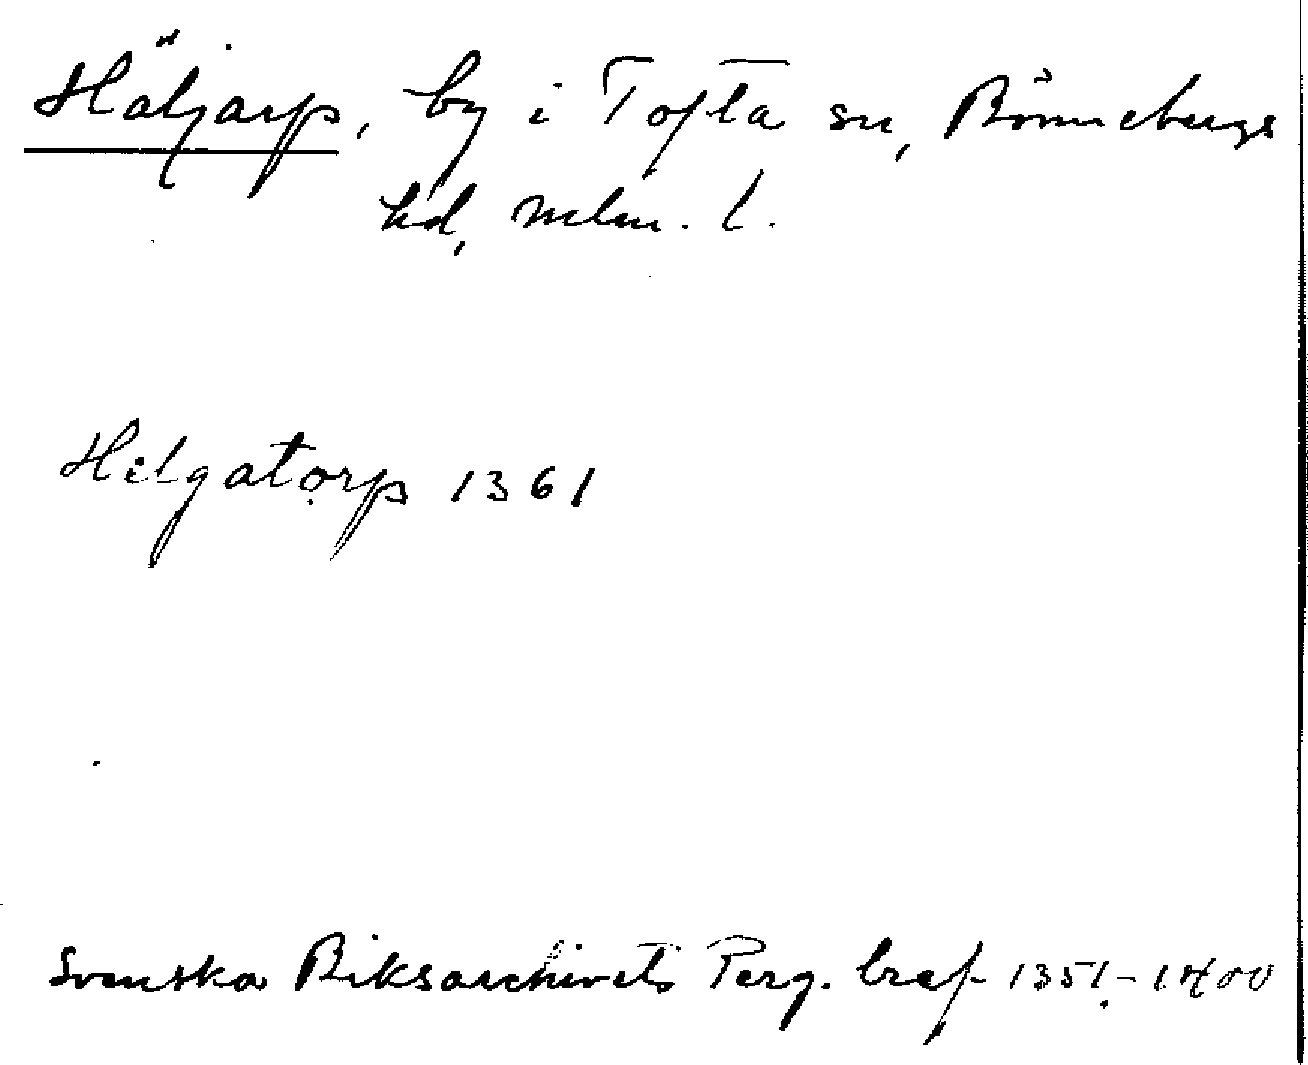 Häljarp, by i Tofta sn, Rönnebergs
hd, Mlm. l.
Helgatorp 1361
Svenska Riksarchivets Perg. bref 1351-1400